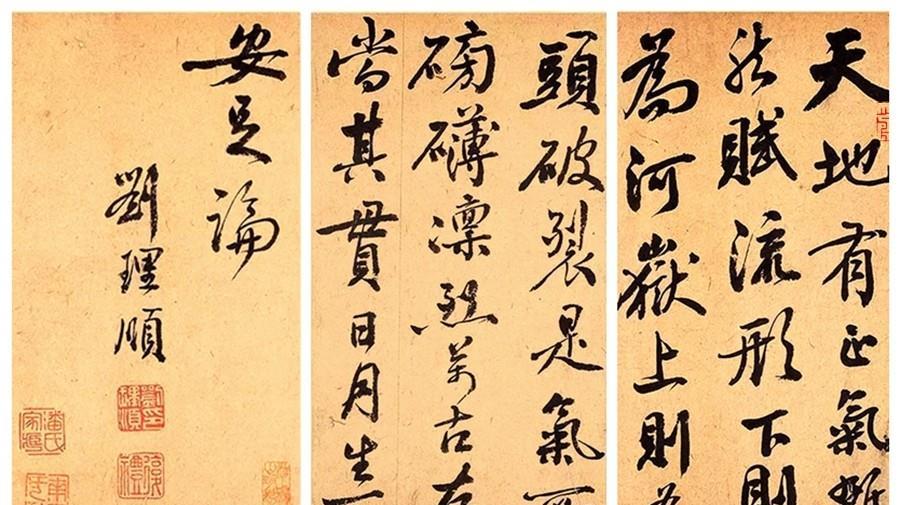 天地有正氣
然賦流形下則
為河嶽上則為
頭破裂是氣所
磅礴凜烈萬古存
當其貫日月生
安足論
劉理順